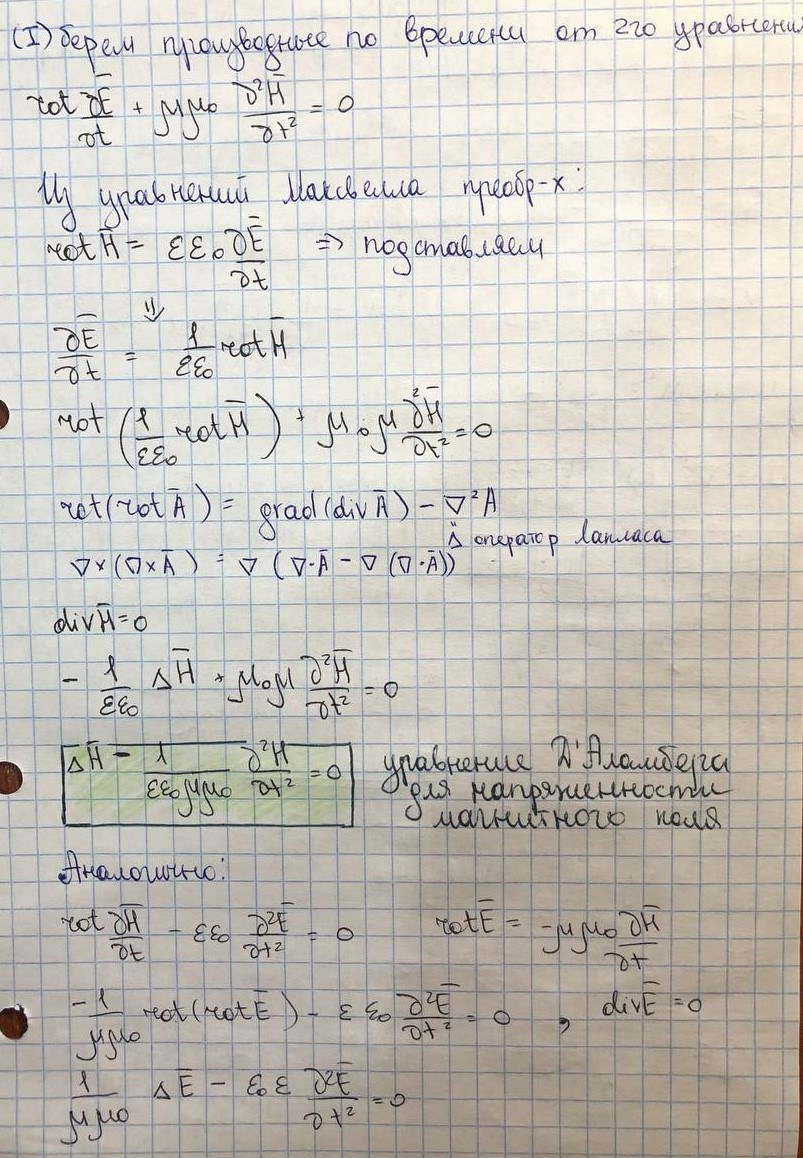 (I) берем производные по времени от 2го уравнения
rot ∂E̅/∂t + μμ₀ ∂²H̅/∂t² = 0
Из уравнений Максвелла преобр-х:
rot H̅ = εε₀ ∂E̅/∂t ⇒ подставляем
⇓
∂E̅/∂t = 1/εε₀ rot H̅
rot (1/εε₀ rot H̅) + μ₀μ ∂²H̅/∂t² = 0
rot(rot A̅) = grad(div A̅) − ∇²A
Δ оператор Лапласа
∇×(∇×A̅) = ∇(∇·A̅ − ∇(∇·A̅))
div H̅ = 0
− 1/εε₀ ΔH̅ + μ₀μ ∂²H̅/∂t² = 0
ΔH̅ − 1/εε₀μμ₀ ∂²H/∂t² = 0 уравнение Д'Аламберга
для напряженности
магнитного поля
Аналогично:
rot ∂H̅/∂t − εε₀ ∂²E̅/∂t² = 0 rot E̅ = −μμ₀ ∂H̅/∂t
−1/μμ₀ rot(rot E̅) − εε₀ ∂²E̅/∂t² = 0 , div E̅ = 0
1/μμ₀ ΔE̅ − ε₀ε ∂²E̅/∂t² = 0